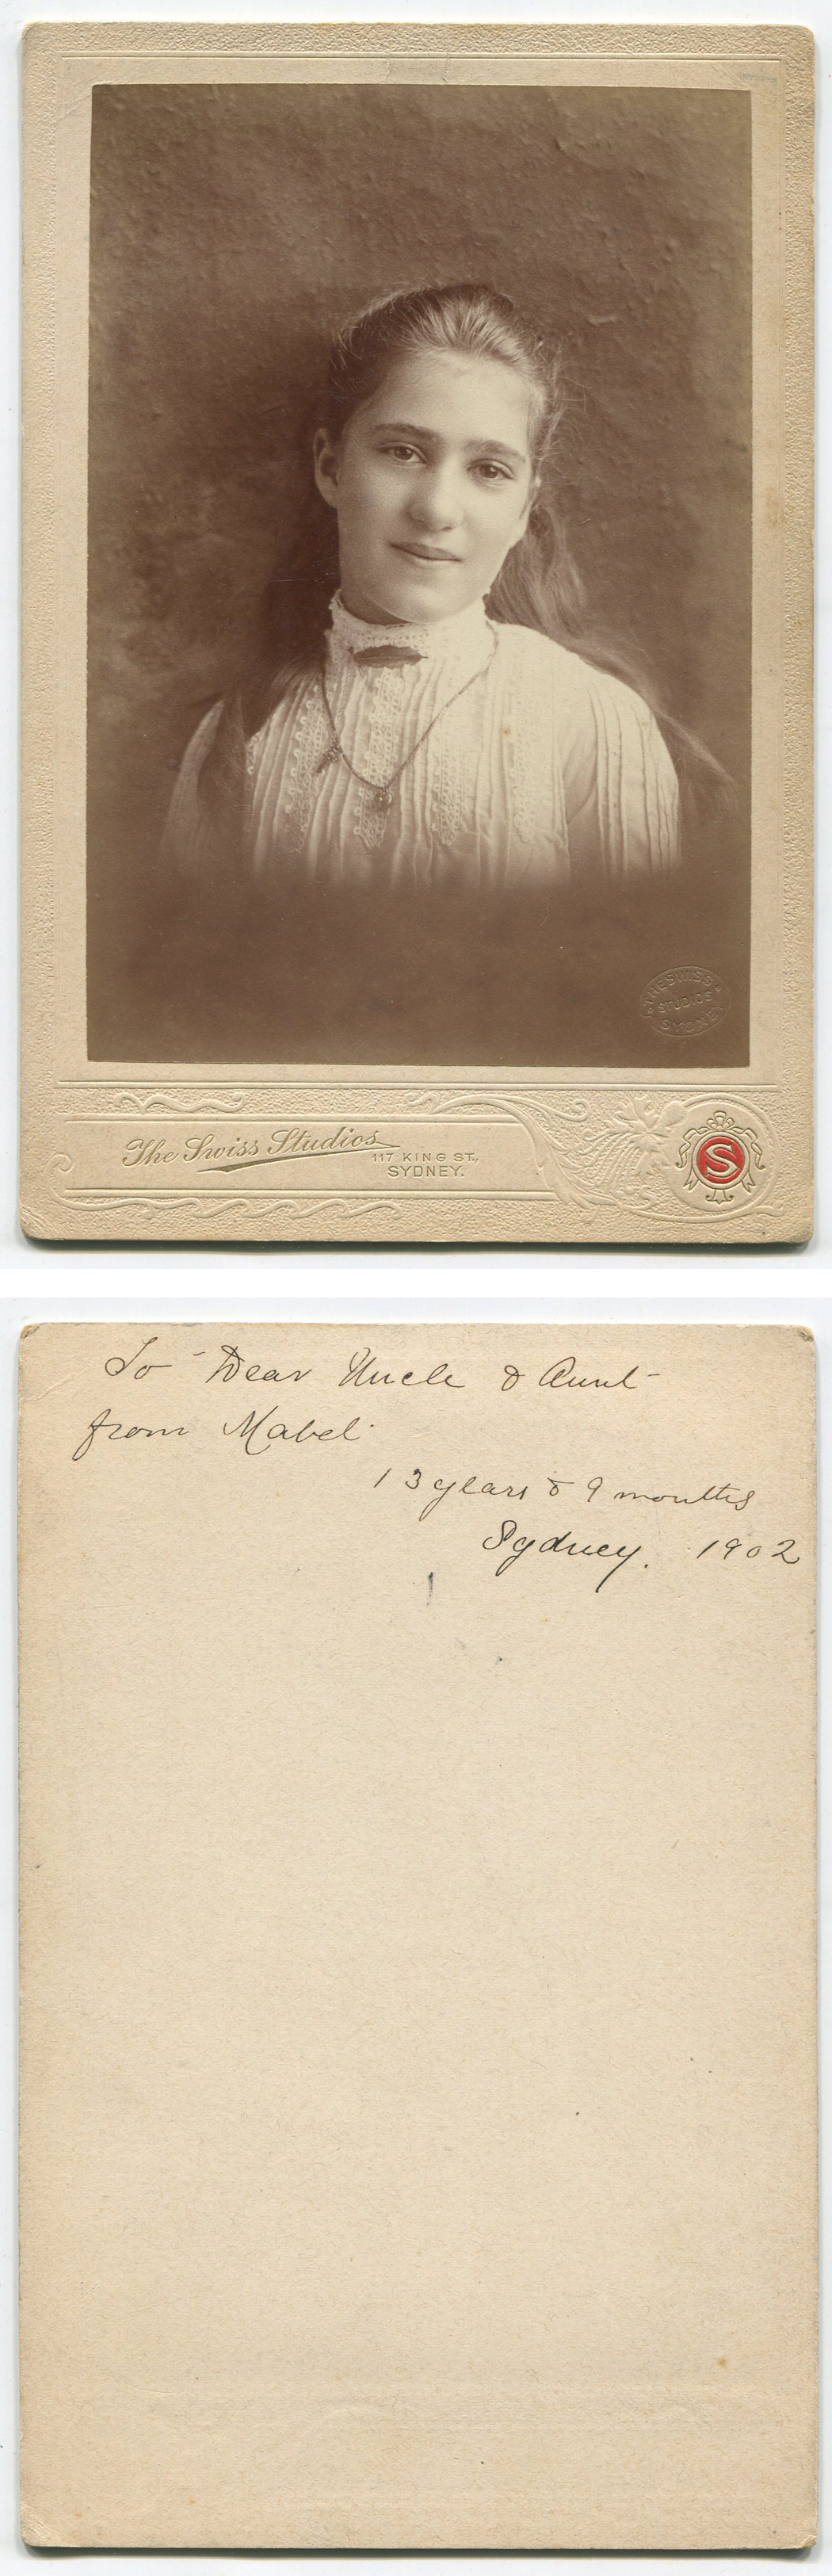 THE SWISS
STUDIOS
SYDNEY
The Swiss Studios
117 KING ST.,
SYDNEY.
S
To Dear Uncle & Aunt
from Mabel.
13 years & 9 months
Sydney. 1902